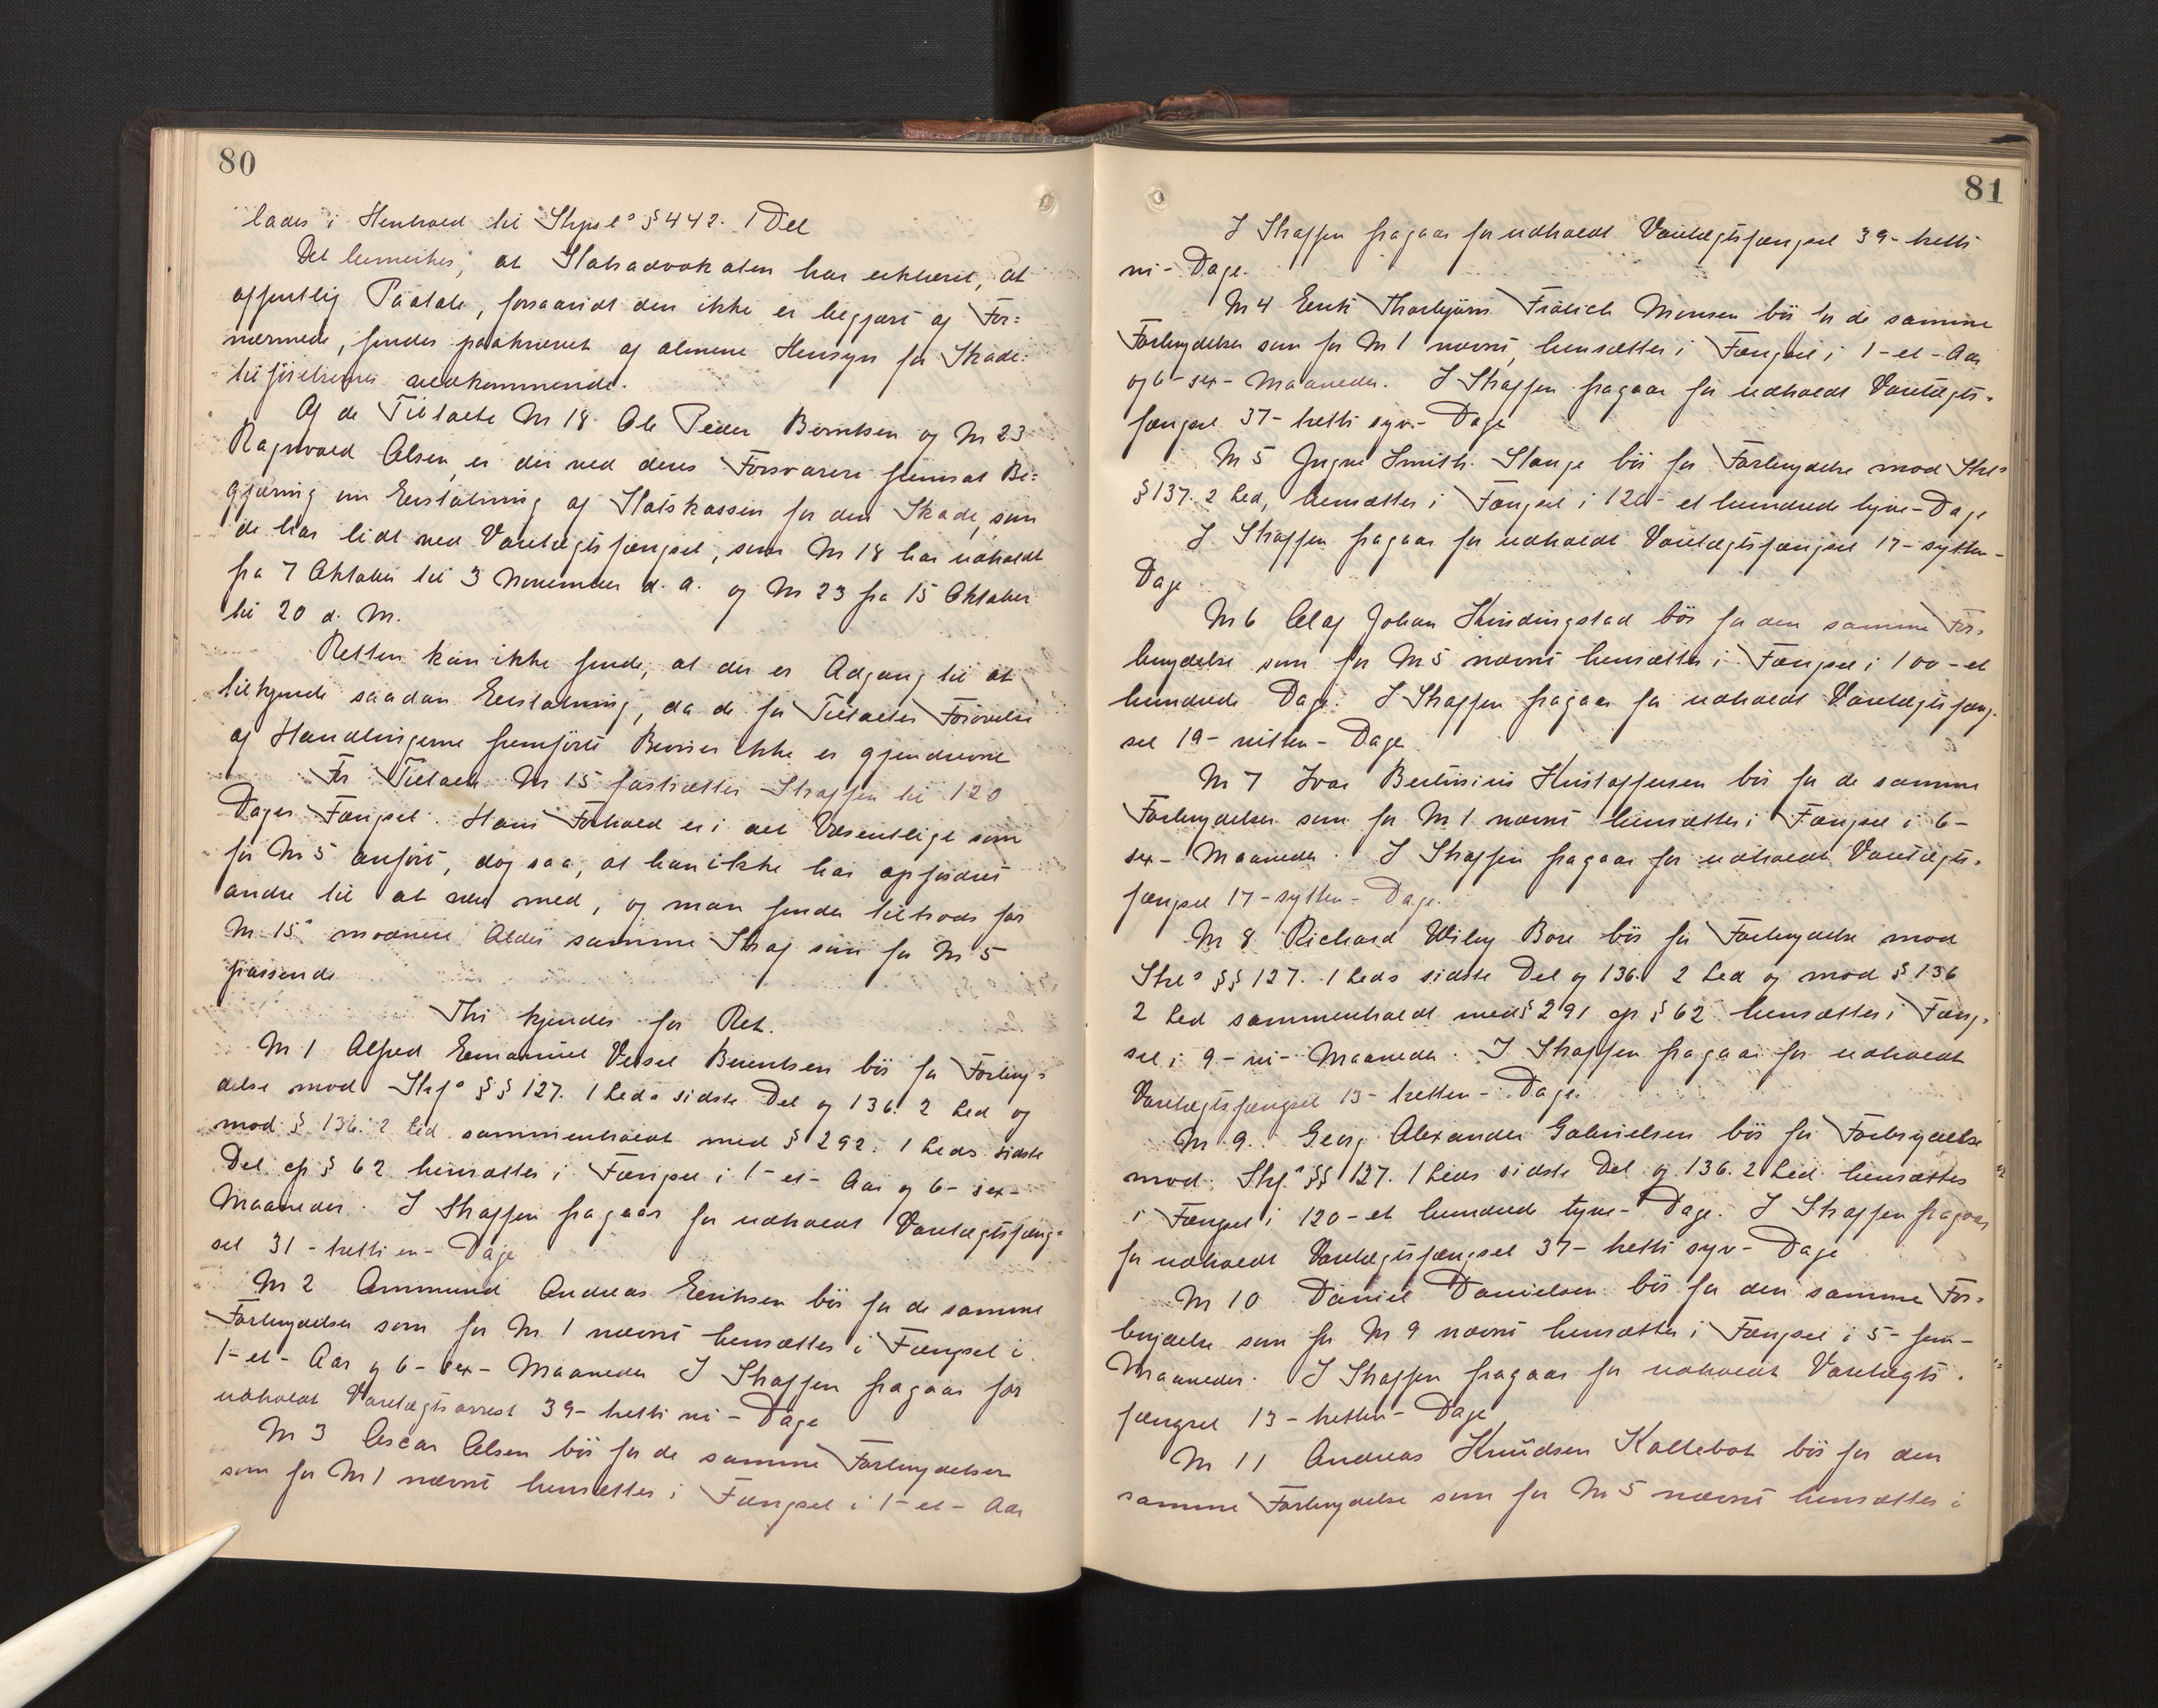 80
lades i Henhold til Strpsl's § 442. 1 Del
Det bemerkes, at Statsadvokaten har erklæret, at
offentlig Paatale, forsaavidt den ikke er begjært af For=
nærmede, findes paakrævet af almene Hensyn for Skade=
tilføielserne vedkommende.
Af de Tiltalte No 18 Ole Peder Berntsen og No 23
Ragnvald Olsen er der ved deres Forsvarere fremsat Be=
gjæring om Erstatning af Statskassen for den Skade, som
de har lidt ved Varetægtsfængsel, som No 18 har udholdt
fra 7 Oktober til 3 November d. A. og No 23 fra 15 Oktober
til 20 d. M.
Retten kan ikke finde, at der er Adgang til at
tilkjende saadan Erstatning, da de for Tiltaltes Forøvelse
af Handlingerne fremførte Beviser ikke er gjendrevne
For Tiltalte No 15 fastsættes Straffen til 120
Dages Fængsel. Hans Forhold er i det Væsentlige som
for No 5 anført, dog saa, at han ikke har opfordret
andre til at være med, og man finder tiltrods for
No 15's modnere Alder samme Straf som for No 5
passende
Thi kjendes for Ret.
No 1 Alfred Emanuel Vessel Berentsen bør for Forbry=
delse mod Strf's §§ 127. 1 Leds sidste Del og 136. 2 Led og
mod § 136. 2 Led sammenholdt med § 292. 1 Leds sidste
Del cfr § 62 hensættes i Fængsel i 1 - et - Aar og 6 - sex -
Maaneder. I Straffen fragaar for udholdt Varetægtsfæng=
sel 31 - tretti en - Dage
No 2 Ommund Andreas Eeriksen bør for de samme
Forbrydelser som for No 1 nævnt hensættes i Fængsel i
1 - et - Aar og 6 - sex - Maaneder I Straffen fragaar for
udholdt Varetægtsarrest 39 - tretti ni - Dage
No 3 Oscar Olsen bør for de samme Forbrydelser
som for No 1 nævnt hensættes i Fængsel i 1 - et - Aar
81
I Straffen fragaar for udholdt Varetægtsfængsel 39 - tretti
ni - Dage.
No 4 Eerik Thorbjørn Frölich Monsen bør for de samme
Forbrydelser som for No 1 nævnt, hensættes i Fængsel i 1 - et - Aar
og 6 - sex - Maaneder. I Straffen fragaar for udholdt Varetægts=
fængsel 37 - tretti syv - Dage
No 5 Yngve Smith Stange bør for Forbrydelse mod Strl's
§ 137. 2 Led, hensættes i Fængsel i 120 - et hundrede tyve - Dage
I Straffen fragaar for udholdt Varetægtsfængsel 17 - sytten -
Dage
No 6 Olaf Johan Kindingstad bør for den samme For=
brydelse som for No 5 nævnt hensættes i Fængsel i 100 - et
hundrede Dage. I Straffen fragaar for udholdt Varetægtsfæng=
sel 19 - nitten - Dage
No 7 Ivar Bertinius Kristoffersen bør for de samme
Forbrydelser som for No 1 nævnt hensættes i Fængsel i 6 -
sex - Maaneder. I Straffen fragaar for udholdt Varetægts=
fængsel 17 - sytten - Dage.
No 8 Richard Wiley Bore bør for Forbrydelse mod
Strl's §§ 127. 1 Leds sidste Del og 136. 2 Led og mod § 136
2 Led sammenholdt med § 291 cfr § 62 hensættes i Fæng=
sel i 9 - ni - Maaneder. I Straffen fragaar for udholdt
Varetægtsfængsel 13 - tretten - Dage.
No 9. Georg Alexander Gabrielsen bør for Forbrydelse
mod Strf's §§ 127. 1 Leds sidste Del og 136. 2 Led hensættes
i Fængsel i 120 - et hundrede tyve - Dage. I Straffen fragaar
for udholdt Varetægtsfængsel 37 - tretti syv - Dage
No 10 Daniel Danielsen bør for den samme For=
brydelse som for No 9 nævnt hensættes i Fængsel i 5 - fem -
Maaneder. I Straffen fragaar for udholdt Varetægts=
fængsel 13 - tretten - Dage
No 11 Andreas Knudsen Kallebot bør for den
samme Forbrydelse som for No 5 nævnt hensættes i